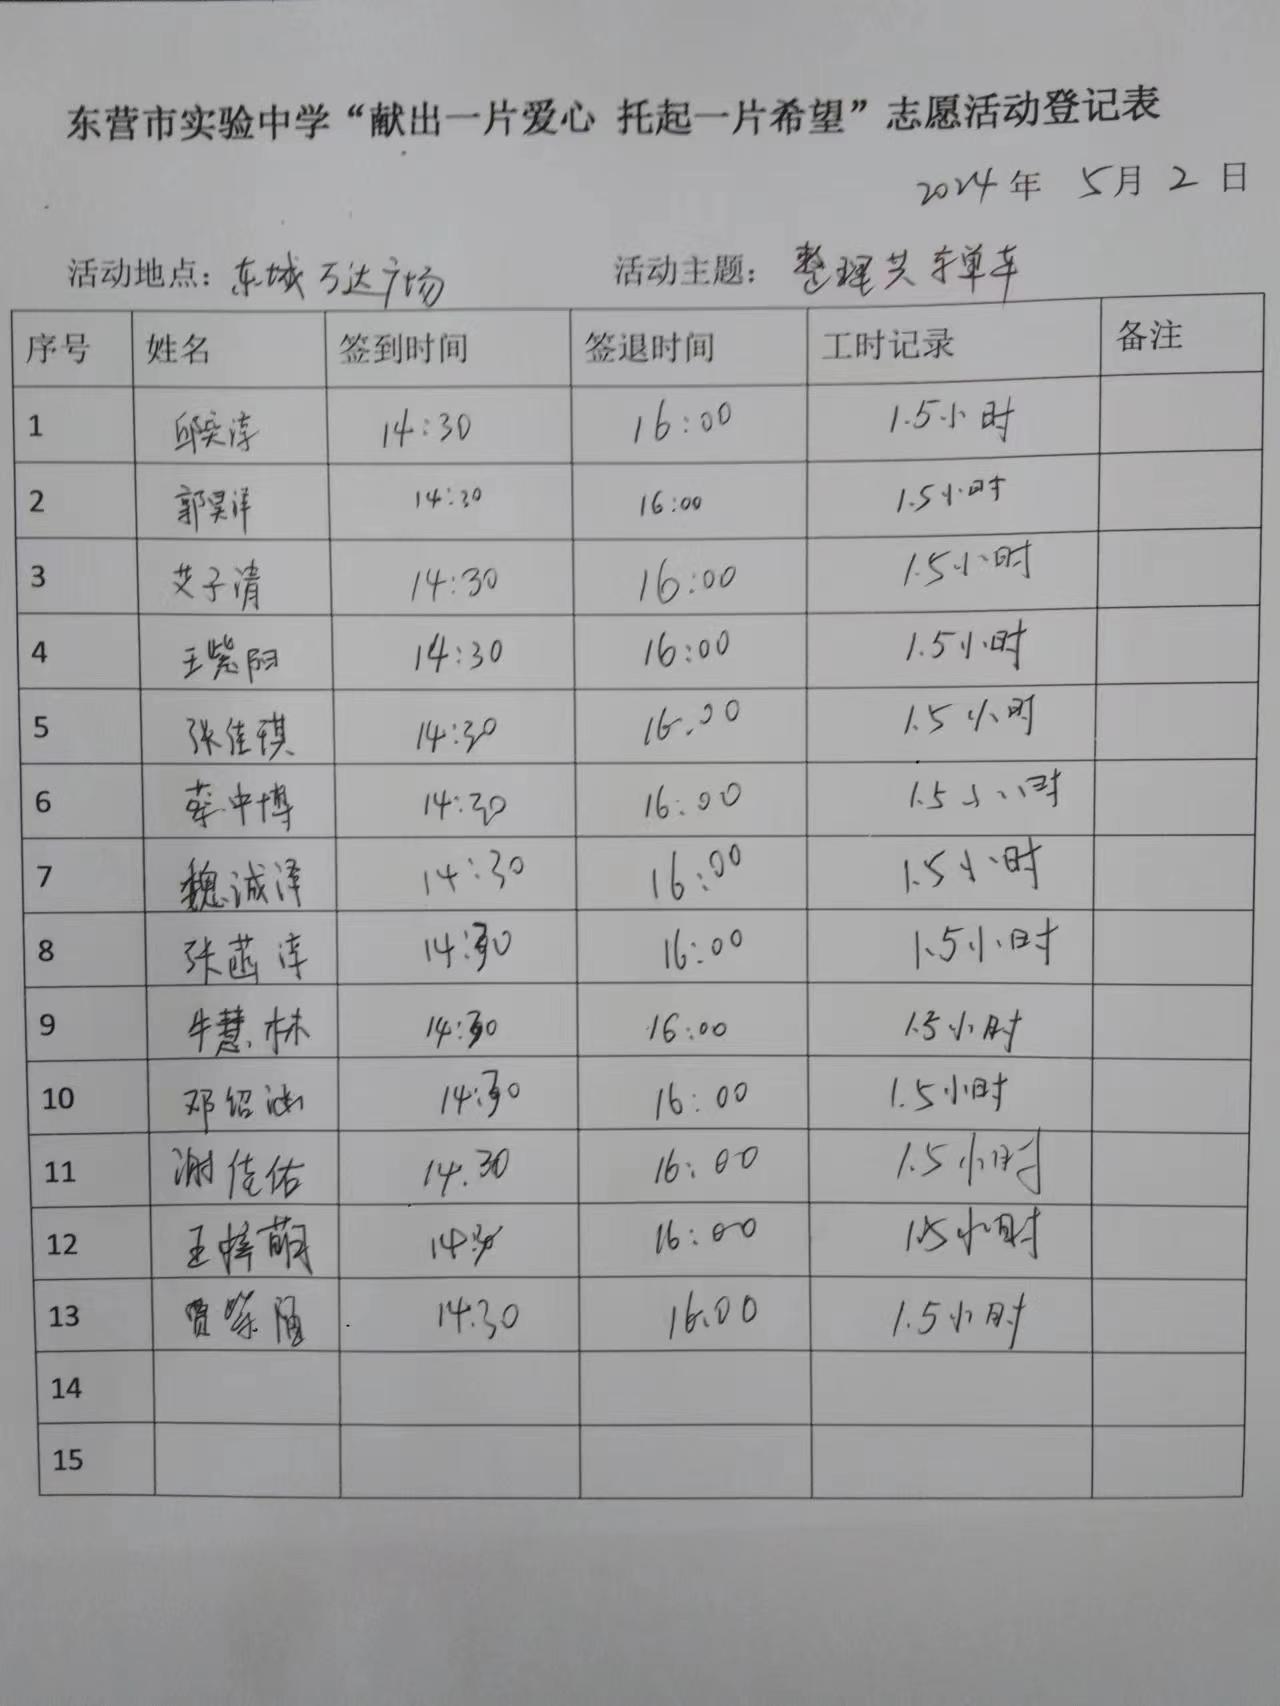 东营市实验中学“献出一片爱心 托起一片希望”志愿活动登记表
2024年 5月 2 日
活动地点：东城万达广场 活动主题：整理共享单车
序号 姓名 签到时间 签退时间 工时记录 备注
1 邱奕淳 14:30 16:00 1.5小时
2 郭昊洋 14:30 16:00 1.5小时
3 艾子清 14:30 16:00 1.5小时
4 王紫阳 14:30 16:00 1.5小时
5 张佳琪 14:30 16:00 1.5小时
6 14:30 16:00 1.5小时
7 魏诚泽 14:30 16:00 1.5小时
8 张菡淳 14:30 16:00 1.5小时
9 牛慧林 14:30 16:00 1.5小时
10 邓绍涵 14:30 16:00 1.5小时
11 谢佳佑 14:30 16:00 1.5小时
12 王梓萌 14:30 16:00 1.5小时
13 14:30 16:00 1.5小时
14
15